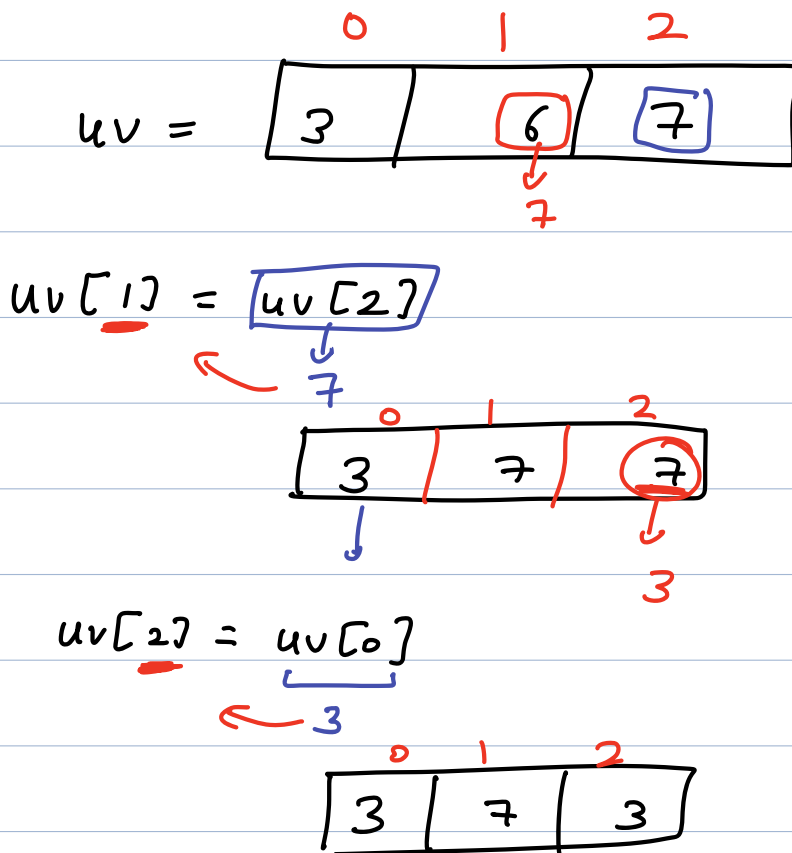 0 1 2
uv = 3 6 7
7
uv[1] = uv[2]
7
0 1 2
3 7 7
3
uv[2] = uv[0]
3
0 1 2
3 7 3